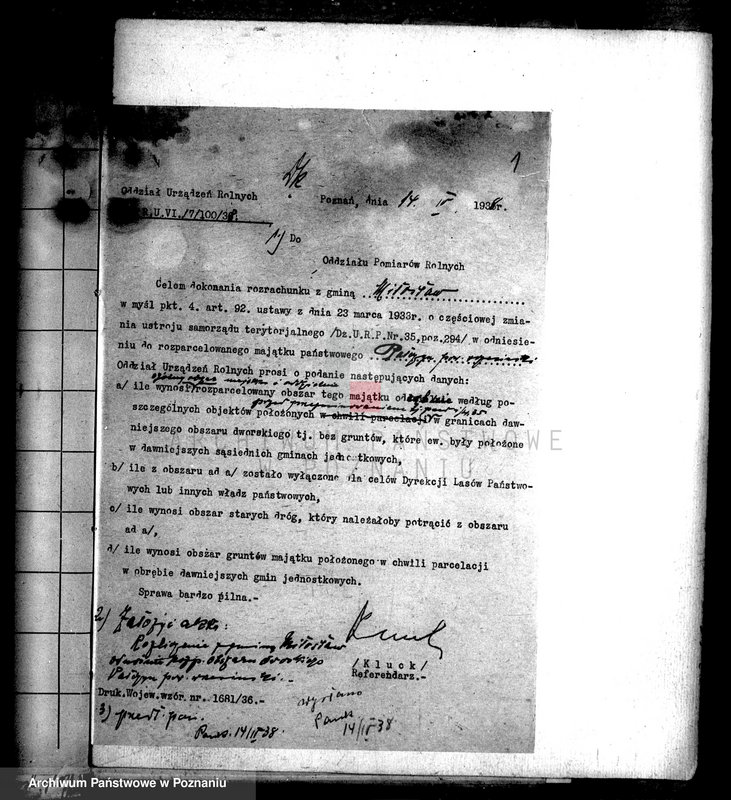 1
Oddział Urządzeń Rolnych
Poznań, dnia 14. IV. 1938r.
R.U.VI./7/100/38.
1/ Do
Oddziału Pomiarów Rolnych
Celem dokonania rozrachunku z gminą Miłosław
w myśl pkt. 4. art. 92. ustawy z dnia 23 marca 1933r. o częściowej zmia-
nia ustroju samorządu terytorjalnego /Dz.U.R.P.Nr.35,poz.294/ w odniesie-
niu do rozparcelowanego majątku państwowego
Oddział Urządzeń Rolnych prosi o podanie następujących danych:
a/ ile wynosi rozparcelowany obszar tego majątku według po-
szczególnych objektów położonych w chwili parcelacji w granicach daw-
niejszego obszaru dworskiego tj. bez gruntów, które ew. były położone
w dawniejszych sąsiednich gminach jednostkowych,
b/ ile z obszaru ad a/ zostało wyłączone dla celów Dyrekcji Lasów Państwo-
wych lub innych władz państwowych,
c/ ile wynosi obszar starych dróg, który należałoby potrącić z obszaru
ad a/,
d/ ile wynosi obszar gruntów majątku położonego w chwili parcelacji
w obrębie dawniejszych gmin jednostkowych.
Sprawa bardzo pilna.-
2/ Założyć akta:
Rozliczenie z gminą Miłosław
obszaru dworskiego
/ K l u c k /
Referendarz.-
Druk.Wojew.wzór. nr. 1681/36.-
wysłano
3)
14/IV 38.
14/IV 38
ARCHIWUM PAŃSTWOWE
W POZNANIU
Archiwum Państwowe w Poznaniu